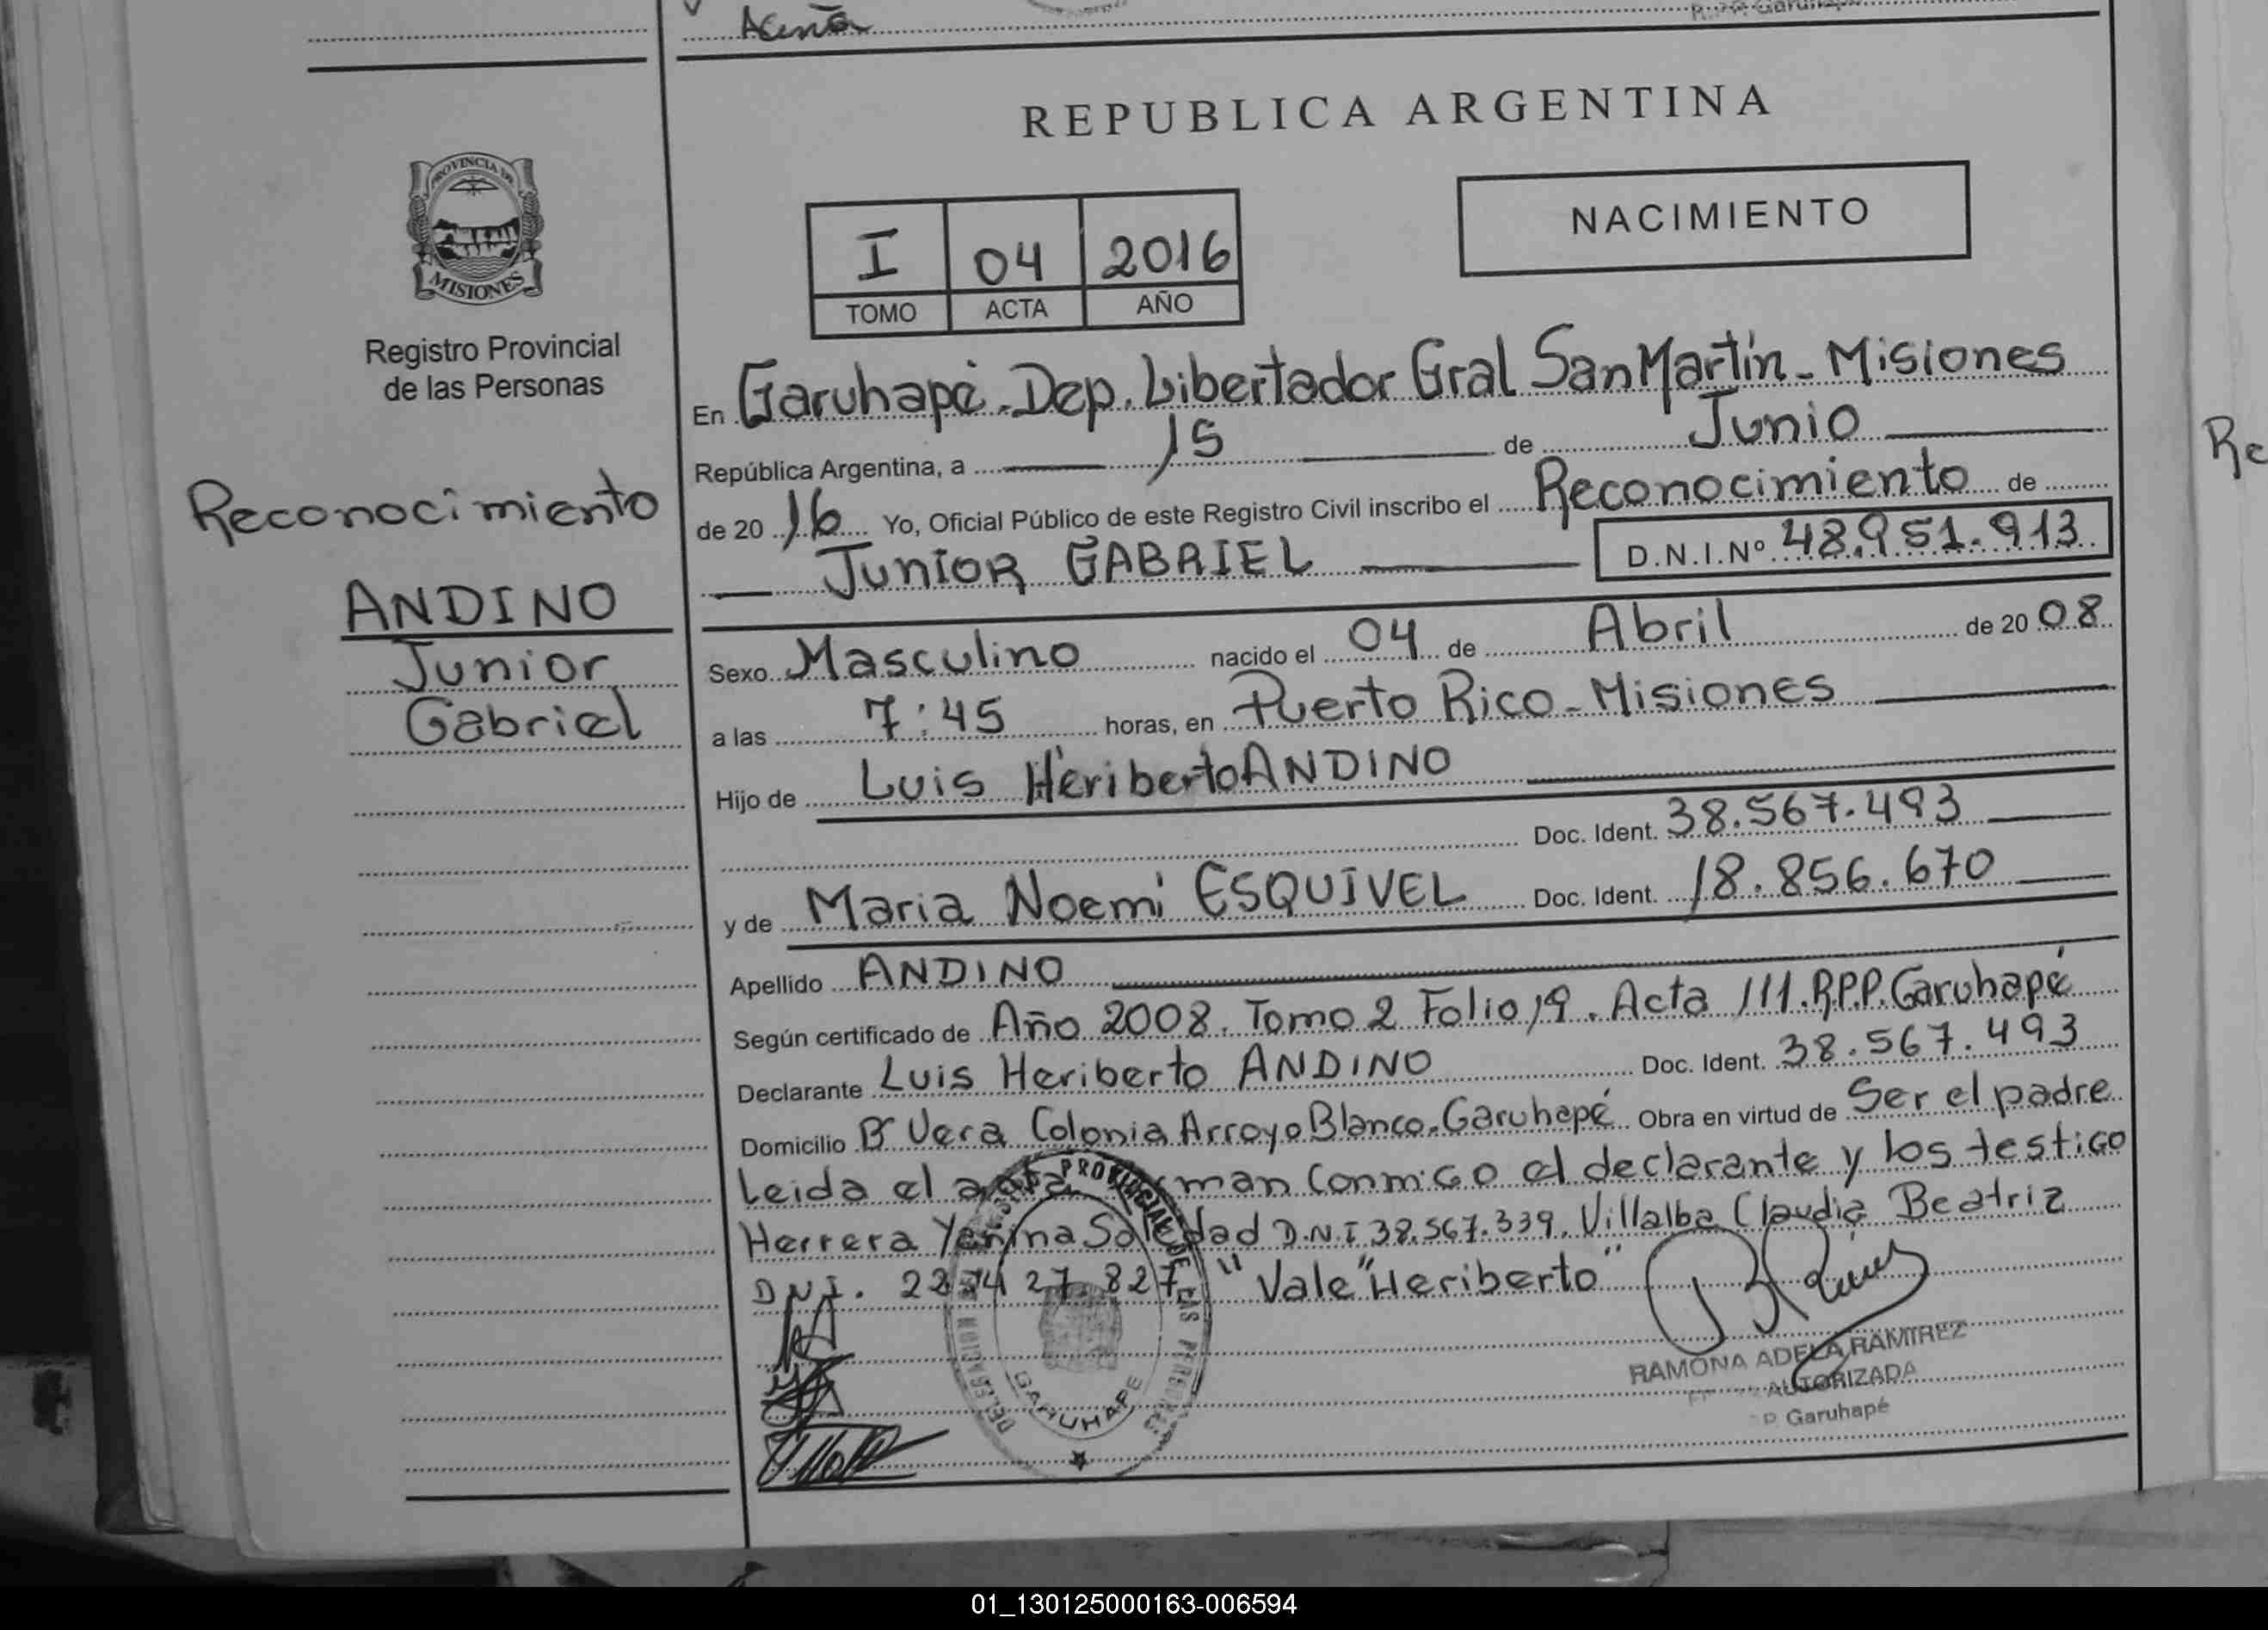 Acuña
R.P.P. Garuhapé
REPUBLICA ARGENTINA
PROVINCIA DE
MISIONES
Registro Provincial
de las Personas
I 04 2016
TOMO ACTA AÑO
NACIMIENTO
Reconocimiento
ANDINO
Junior
Gabriel
En Garuhapé-Dep. Libertador Gral San Martín-Misiones
República Argentina, a 15 de Junio
de 20 16 Yo, Oficial Público de este Registro Civil inscribo el Reconocimiento de
JUNIOR GABRIEL D.N.I.Nº 48.951.913
Sexo Masculino nacido el 04 de Abril de 20 08
a las 7:45 horas, en Puerto Rico-Misiones
Hijo de Luis Heriberto ANDINO
Doc. Ident. 38.567.493
y de Maria Noemi ESQUIVEL Doc. Ident. 18.856.670
Apellido ANDINO
Según certificado de Año 2008. Tomo 2 Folio 19. Acta 111. R.P.P. Garuhapé
Declarante Luis Heriberto ANDINO Doc. Ident. 38.567.493
Domicilio Bº Vera Colonia Arroyo Blanco-Garuhapé Obra en virtud de Ser el padre
Leida el acta man conmigo el declarante y los testigo
Herrera Yanina Soledad D.N.I 38.567.339. Villalba Claudia Beatriz
D.N.I. 827 "Vale "Heriberto"
PROVINCIAL DE LAS PERSONAS
DELEGACION
GARUHAPE
RAMONA ADELA RAMIREZ
AUTORIZADA
P. Garuhapé
Re
01_130125000163-006594